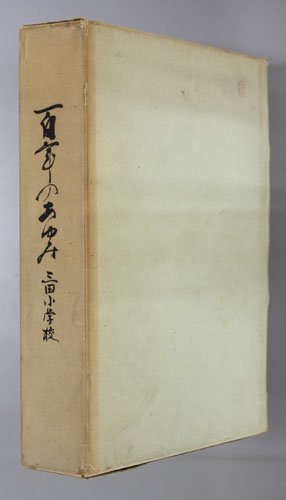 百年のあゆみ
三田小学校